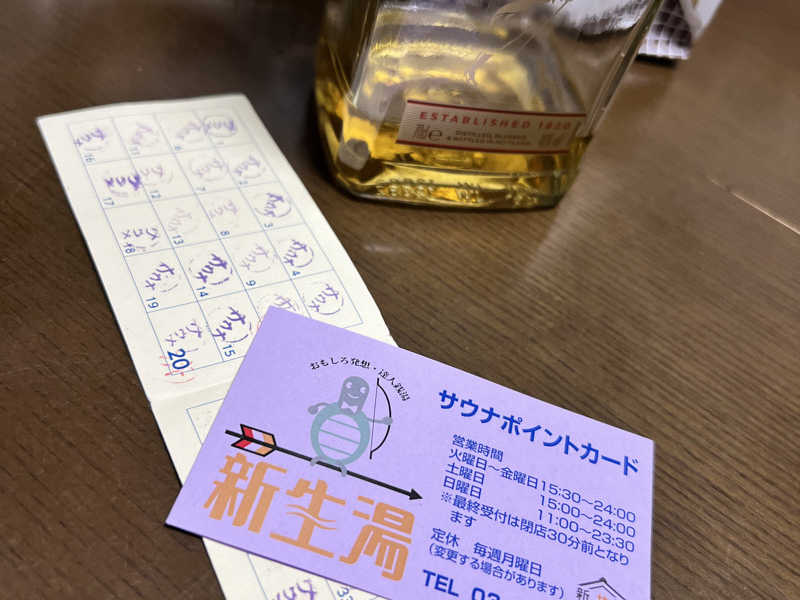 ESTABLISHED 1820
DISTILLED, BLENDED
& BOTTLED IN SCOTLAND
16
17
サウナ
18
19
20
11
12
13
サウナ
14
サウナ
15
6
7
8
9
1
2
3
サウナ
4
サウナ
おもしろ発想・達人銭湯
新生湯
サウナポイントカード
営業時間
火曜日~金曜日15:30~24:00
土曜日 15:00~24:00
日曜日 11:00~23:30
※最終受付は閉店30分前となり
ます
定休 毎週月曜日
(変更する場合があります)
TEL 03
33